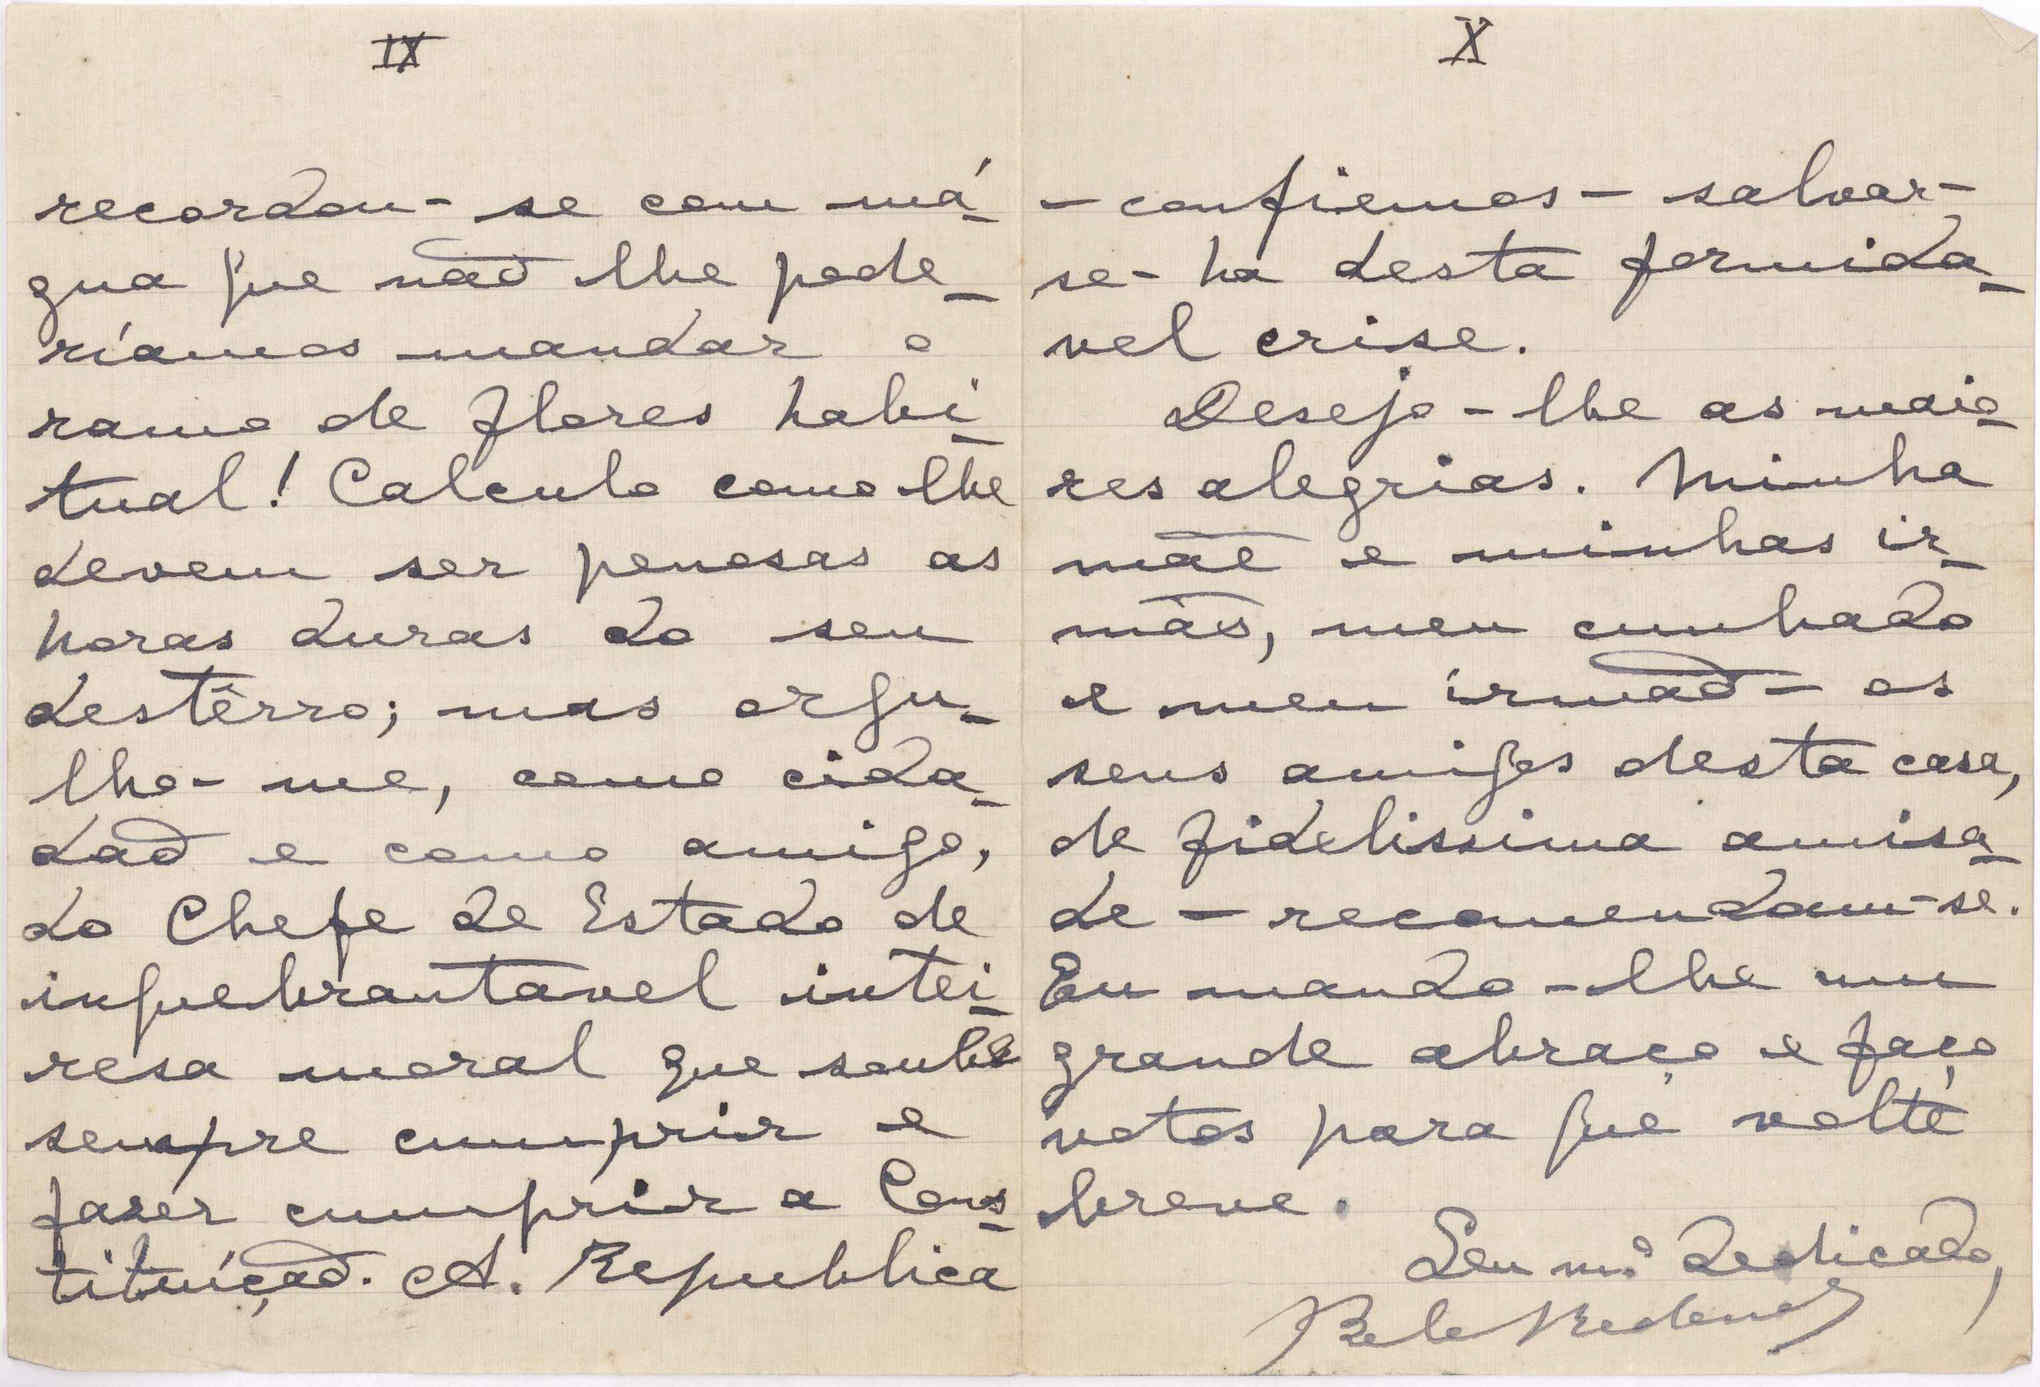 IX
recordou-se com má-
gua que não lhe pode-
ríamos mandar o
ramo de flores habi-
tual! Calculo como lhe
devem ser penosas as
horas duras do seu
destêrro; mas orgu-
lho-me, como cida-
dão e como amigo,
do Chefe de Estado de
inquebrantavel intei-
resa moral que soube
sempre cumprir e
fazer cumprir a Cons-
tituíção. A. Republica
X
-confiemos- salvar-
se-ha desta formida-
vel crise.
Desejo-lhe as maio-
res alegrias. Minha
mãe e minhas ir-
mãs, meu cunhado
e meu irmão - os
seus amigos desta casa,
de fidelissima amisa-
de - recomendam-se.
Eu mando-lhe um
grande abraço e faço
votos para que volte
breve.
Seu m.º dedicado,